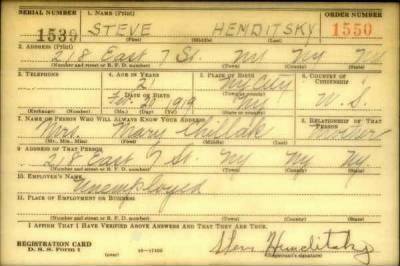 SERIAL NUMBER 1. NAME (Print) ORDER NUMBER
1539 STEVE HEMDITSKY 1550
(First) (Middle) (Last)
2. ADDRESS (Print)
218 East 7 St. NY NY NY
(Number and street or R. F. D. number) (Town) (County) (State)
3. TELEPHONE 4. AGE IN YEARS 5. PLACE OF BIRTH 6. COUNTRY OF CITIZENSHIP
21 NY City
DATE OF BIRTH
Feb. 1919 NY U.S.
(Exchange) (Number) (Mo.) (Day) (Yr.) (State or country)
7. NAME OF PERSON WHO WILL ALWAYS KNOW YOUR ADDRESS 8. RELATIONSHIP OF THAT PERSON
Mrs. Mary Mother
(Mr., Mrs., Miss) (First) (Middle) (Last)
9. ADDRESS OF THAT PERSON
218 East 7 St. NY NY NY.
(Number and street or R. F. D. number) (Town) (County) (State)
10. EMPLOYER'S NAME
Unemployed
11. PLACE OF EMPLOYMENT OR BUSINESS
(Number and street or R. F. D. number) (Town) (County) (State)
I AFFIRM THAT I HAVE VERIFIED ABOVE ANSWERS AND THAT THEY ARE TRUE.
REGISTRATION CARD
D. S. S. Form 1 Hemditsky
(Registrant's signature)